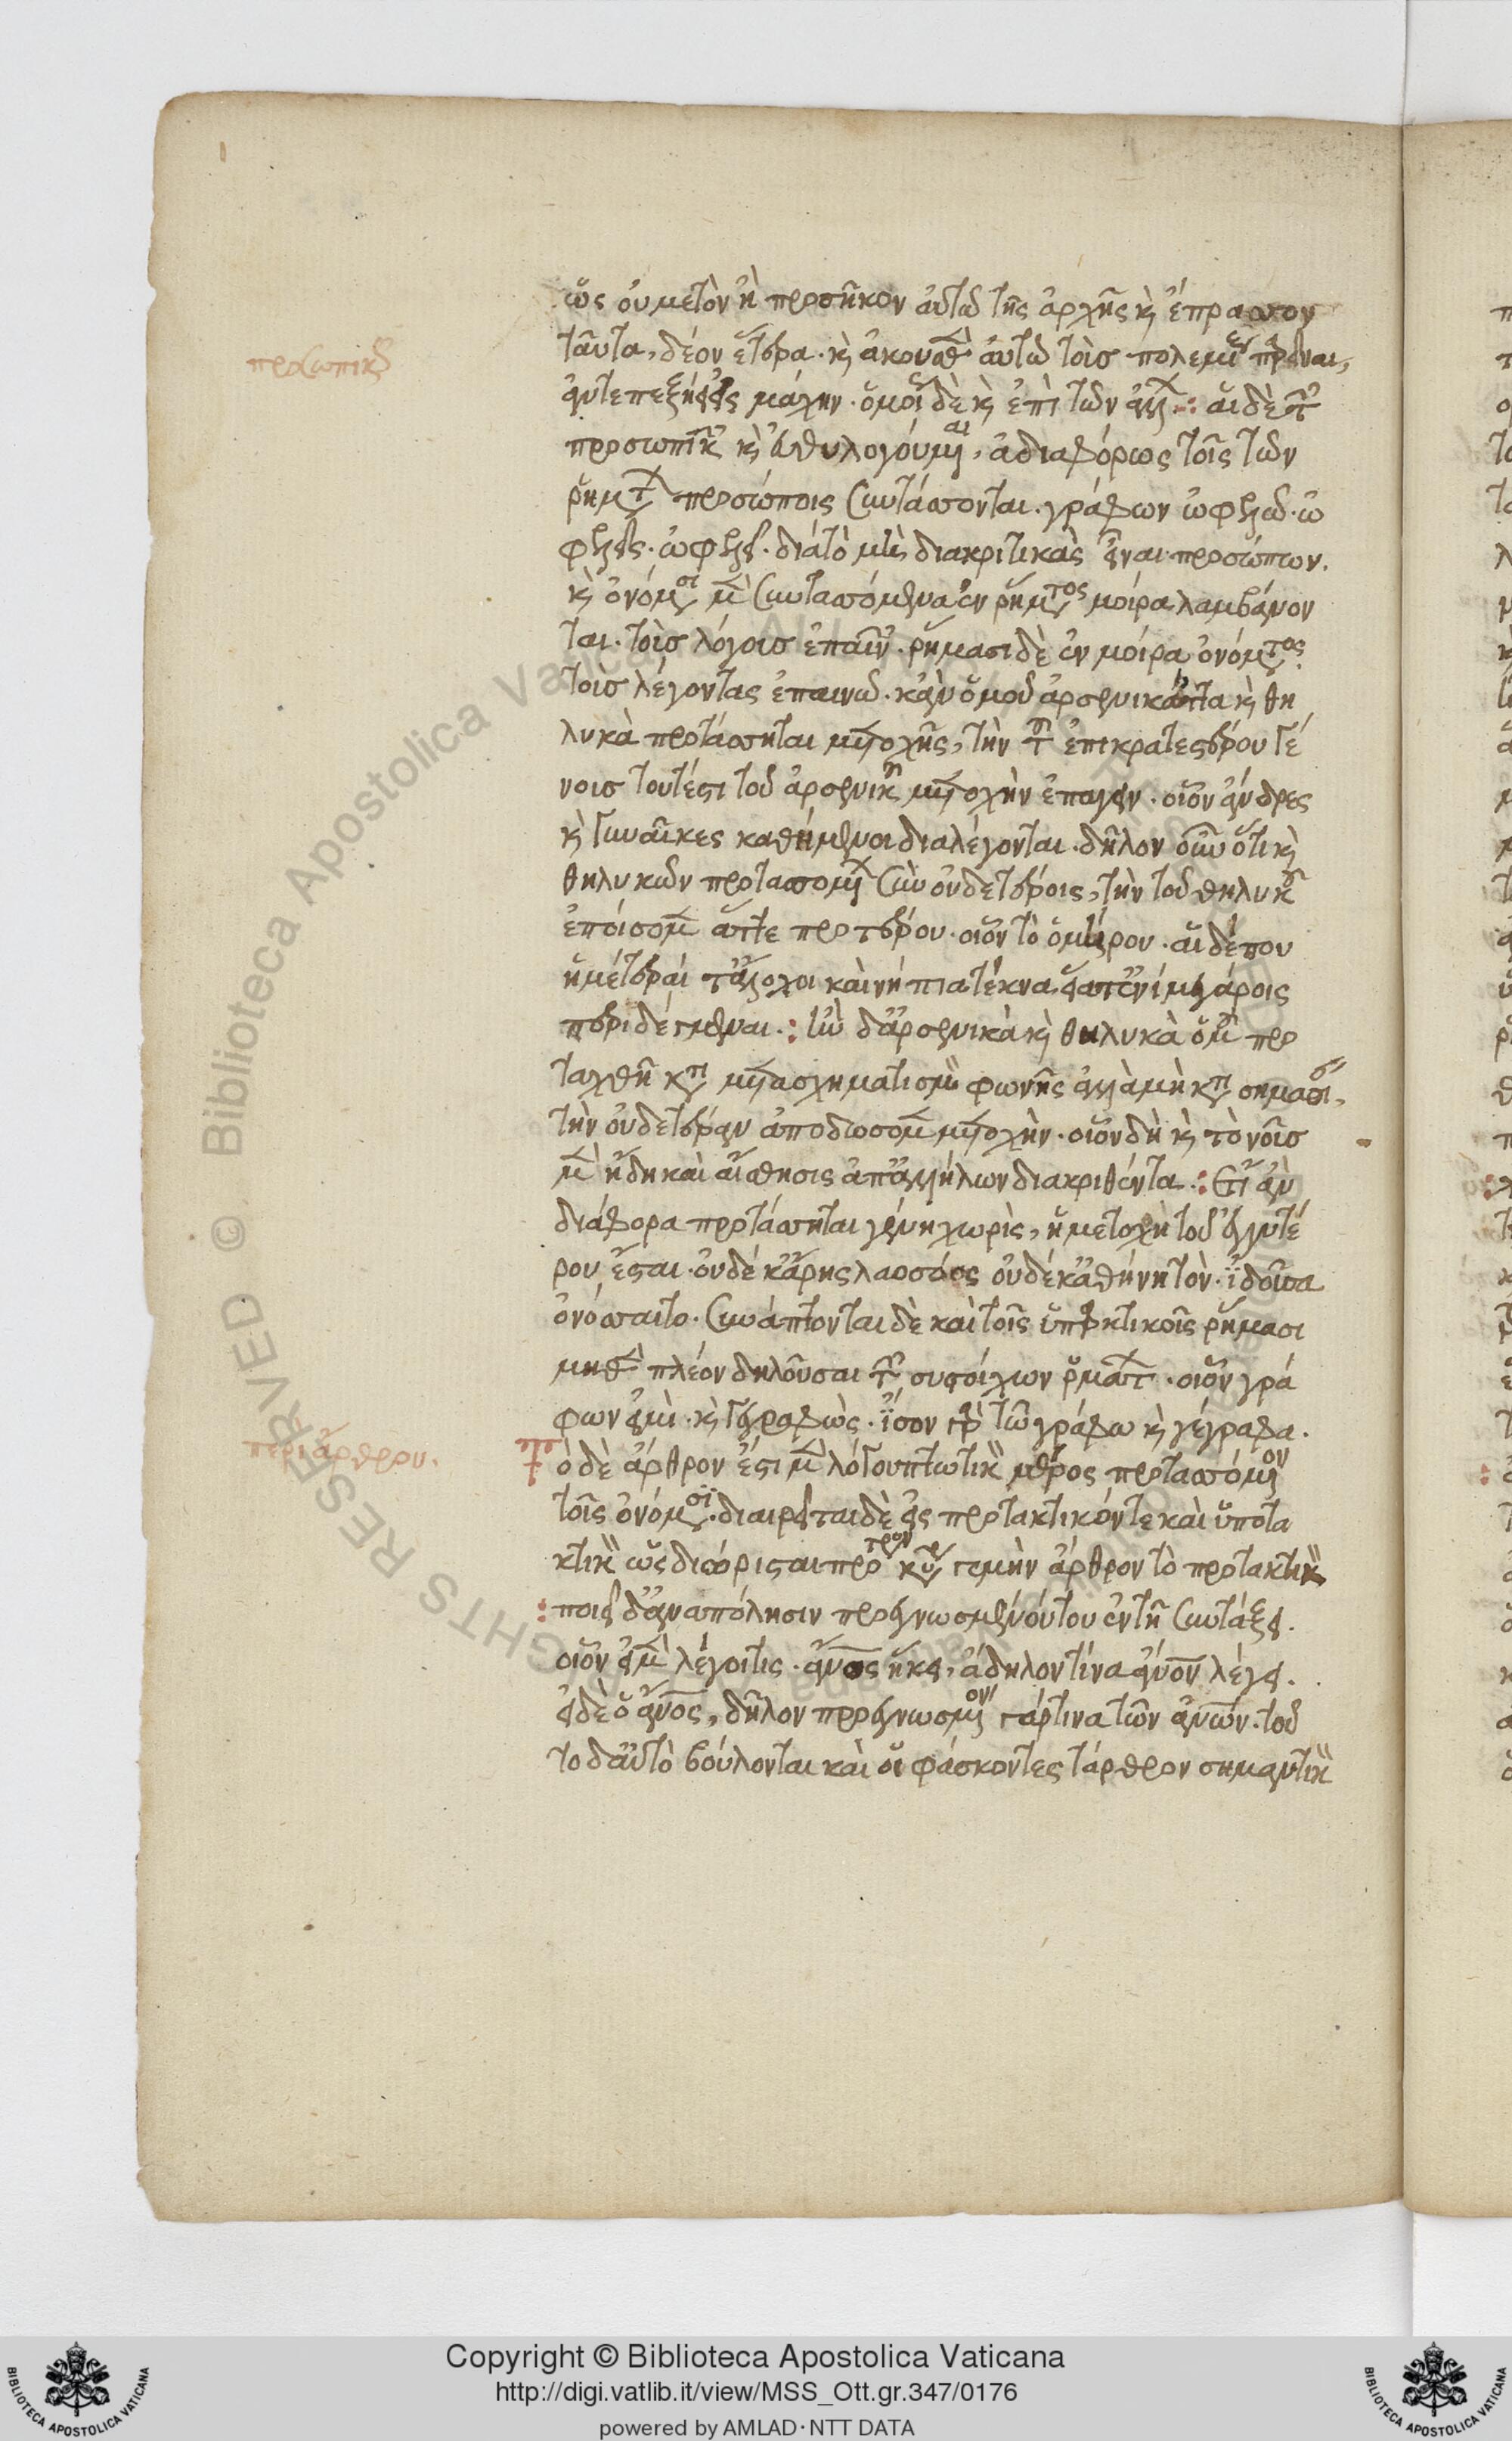 ὡς οὐ μετὸν ἢ προσῆκον αὐτῶ τῆς ἀρχῆς κ ἔπραττον
προσωπικοῦ
ταῦτα, δέον ἕτερα. κ ἀκούσθαι αὐτῶ τοῖσ πολεμίοις
ἀντεπεξήεις μάχην. ὁμοί δὲ κ ἐπὶ τῶν ἄλλων: αἱ δὲ τοῦ
προσωπικοῦ κ εὐθυλογούμεναι, ἀδιαφόρως τοῖς τῶν
ῥημάτων προσώποις συντάσσονται. γράφων ὠφελῶ. ὠ
φελεῖς. ὠφελεῖ. διὰ τὸ μὴ διακριτικὰς εἶναι προσώπων.
κ ὀνόμασι μὲν συντασσόμεναι ἐν ῥήματος μοίρα λαμβάνον
ται. τοῖσ λόγοισ ἐπαινῶν. ῥήμασι δὲ ἐν μοίρα ὀνόματος
τοῖσ λέγοντας ἐπαινῶ. κἂν ὁμοῦ ἀρσενικὰ ὄντα κ θη
λυκὰ προτάσσηται μετοχῆς, τὴν τοῦ ἐπικρατεστέρου γέ
νοισ τουτέστι τοῦ ἀρσενικοῦ μετοχὴν ἐπαγειν. οἷον ἄνδρες
κ γυναῖκες καθήμενοι διαλέγονται. δῆλον οὖν ὅτι κ
θηλυκῶν προτασσομένων σὺν οὐδετέροις, τὴν τοῦ θηλυκοῦ
ἐποίσομεν ἅττε προτέρου. οἷον τὸ ὁμήρου. αἱ δέ που
ἡμέτεραί τ' ἄλοχοι καὶ νήπια τέκνα, εἵατ' ἐνὶ μεγάροις
ποτιδέγμεναι.: ἰὼ δ' ἀρσενικὰ κ θηλυκὰ ὁμοῦ προ
ταχθῆ κατὰ μετασχηματισμὸν φωνῆς ἀλλὰ μὴ κατὰ σημασι,
τὴν οὐδετέραν ἀποδώσομεν μετοχὴν. οἷον δὴ κ τὸ νοῖσ
μὲν ἤδη καὶ αἴσθησις ἀπ' ἀλλήλων διακριθέντα.: Εἰ ἂν
διάφορα προτάσσηται γένη χωρὶς, ἡ μετοχὴ τοῦ ἐγγυτέ
ρου ἔσται. οὐδέ κ' ἄρης λαοσσόος οὐδέ κ' ἀθήνη τὸν. ἰδοῦσα
ὀνόσαιτο. συνάπτονται δὲ καὶ τοῖς ὑπαρκτικοῖς ῥήμασι
μηθὲν πλέον δηλοῦσαι τῶν συστοίχων ῥημάτων. οἷον γρά
φων εἰμὶ. κ γεγραφὼς. ἴσον γὰρ τῶ γράφω κ γέγραφα.
περὶ ἄρθρου.
Τὸ δὲ ἄρθρον ἔστι μὲν λόγου πτωτικὸν μέρος προτασσόμενον
τοῖς ὀνόμασι. διαιρεῖται δὲ εἰς προτακτικόν τε καὶ ὑποτα
κτικὸν ὡς διώρισται πρότερον κυρίως γε μὴν ἄρθρον τὸ προτακτικὸν
: ποιεῖ δ' ἀναπόλησιν προεγνωσμένου του ἐν τῆ συντάξει.
οἷον εἰ μὲν λέγοι τις. ἄνος ἥκει, ἄδηλον τίνα ἄνον λέγει.
εἰ δὲ ὁ ἄνος, δῆλον προεγνωσμένον γάρ τινα τῶν ἀνων. τοῦ
το δ' αὐτὸ βούλονται καὶ οἱ φάσκοντες τἄρθρον σημαντικὸν
Copyright © Biblioteca Apostolica Vaticana
http://digi.vatlib.it/view/MSS_Ott.gr.347/0176
powered by AMLAD·NTT DATA